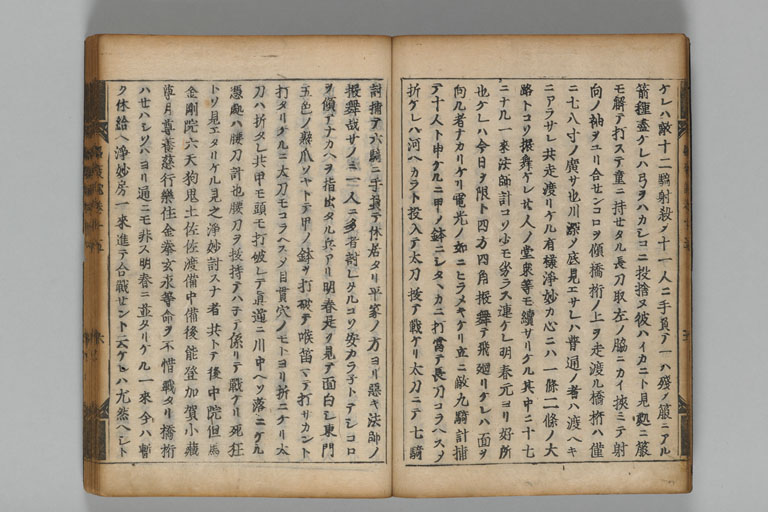 ケレハ敵十二騎射殺ノ十一人ニ手負テ一ハ残ノ箙ニアル
箭種盡ケレハ弓ヲハカシコニ投捨ヌ彼ハイカニト見処ニ箙
モ解テ打ステ童ニ持セタル長刀取左ノ脇ニカイ挟ミテ射
向ノ袖ヲユリ合せシコロヲ傾橋桁ノ上ヲ走渡ル橋桁ハ僅
ニ七八寸ノ廣サ也川深ノ底見エサレハ普通ノ者ハ渡ヘキ
ニアラサレ共走渡リケル有様浄妙カ心ニハ一條二條ノ大
路トコソ振舞ケレ廿人ノ堂衆等モ續サリケル其中ニ十七
ニナル一来法師計コソ少モ劣ラス連ケレ明春元ヨリ好所
也ケレハ今日ヲ限ト四方四角振舞テ飛廻リケレハ面ヲ
向ル者ナカリケリ電光ノ如ニヒラメキケリ立ニ敵九騎討捕
テ十人ト申ケルニ甲ノ鉢ニシタヽカニ打當テ長刀コラヘスノ
折ケレハ河ヘカラト投入テ太刀抜テ戦ケリ太刀ニテ七騎
討捕テ六騎ニ手負テ休居タリ平家ノ方ヨリ悪キ法師ノ
振舞哉サノミ一人ニ多者討レケルコソ安カラ子トテシコロ
ヲ傾テナカヘヲ指出タル兵アリ明春是ヲ見テ面白シ東門
五色ノ熟爪ソヤトテ甲ノ鉢ヲ打破テ喉笛マテ打サカント
打タリケルニ太刀モコラヘスノ目貫穴ノモトヨリ折ニケリ太
刀ハ折タレ共甲モ頭モ打破レテ真逆ニ川中ヘソ落ニケル
憑処ハ腰刀計也腰刀ヲ抜持テハチテ係リテ戦ケリ死狂
トソ見エタリケル見之浄妙討スナ者共トテ後中院但馬
金剛院六天狗鬼土佐佐渡備中備後能登加賀小藏
尊月尊養慈行樂住金拳玄永等命ヲ不惜戦タリ橋桁
ハせハシソハヨリ通ニモ非ス明春ニ並タリケル一来今ハ暫
ク休給ヘ浄妙房一来進テ合戦せント云ケレハ尤然ヘシト